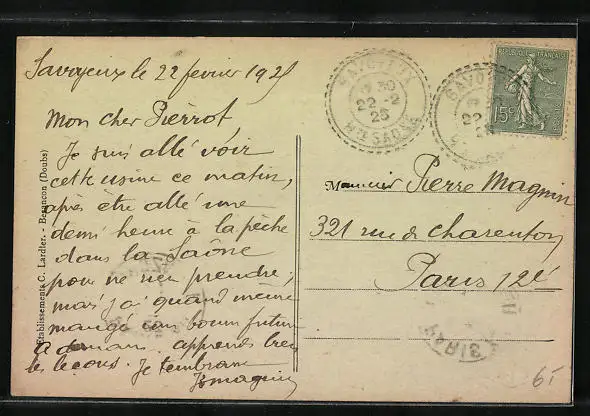 Savoyeux le 22 février 1925
Mon cher Pierrot
Je suis allé voir
cette usine ce matin,
après être allé une
demi heure à la pêche
dans la Saône
pour ne rien prendre;
mais j'ai quand même
mangé
A demain. apprends bien
tes leçons. Je t'embrasse
Magnin
Etablissements C. Lardier. - Besançon (Doubs)
SAVOYEUX
22 - 2
25
HTE SAONE
REPUBLIQUE FRANÇAISE
15c
Monsieur Pierre Magnin
321 rue de Charenton
Paris 12e
PARIS